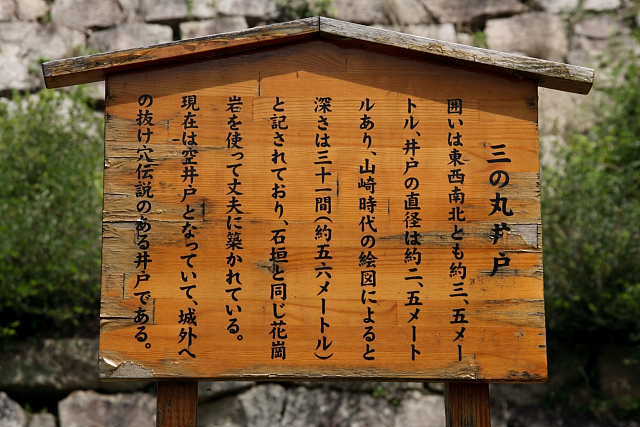 三の丸井戸
囲いは東西南北とも約三、五メー
トル、井戸の直径は約二、五メート
ルあり、山崎時代の絵図によると
深さは三十一間(約五六メートル)
と記されており、石垣と同じ花崗
岩を使って丈夫に築かれている。
現在は空井戸となっていて、城外へ
の抜け穴伝説のある井戸である。